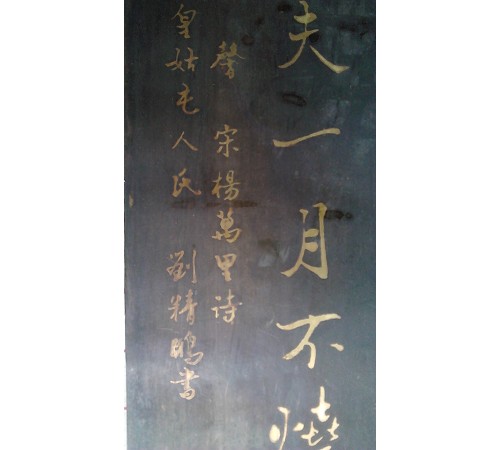 夫一月不燒
馨 宋楊萬里诗
皇姑屯人氏 劉精鵬書